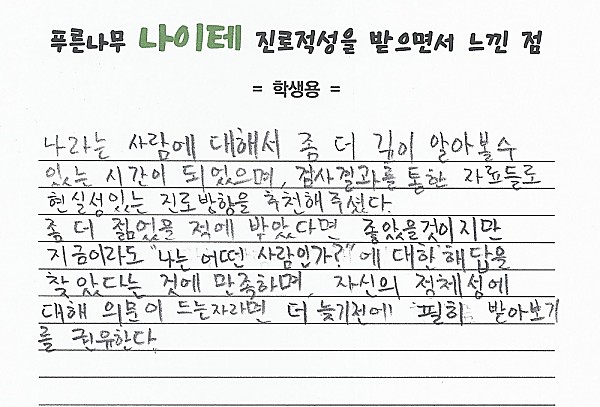 푸른나무 나이테 진로적성을 받으면서 느낀 점
= 학생용 =
나라는 사람에 대해서 좀 더 깊이 알아볼수
있는 시간이 되었으며, 검사결과를 통한 자료들로
현실성있는 진로방향을 추천해주셨다.
좀 더 젊었을 적에 받았다면 좋았을것이지만
지금이라도 "나는 어떤 사람인가?"에 대한 해답을
찾았다는 것에 만족하며, 자신의 정체성에
대해 의문이 드는자라면 더 늦기전에 필히 받아보기
를 권유한다.